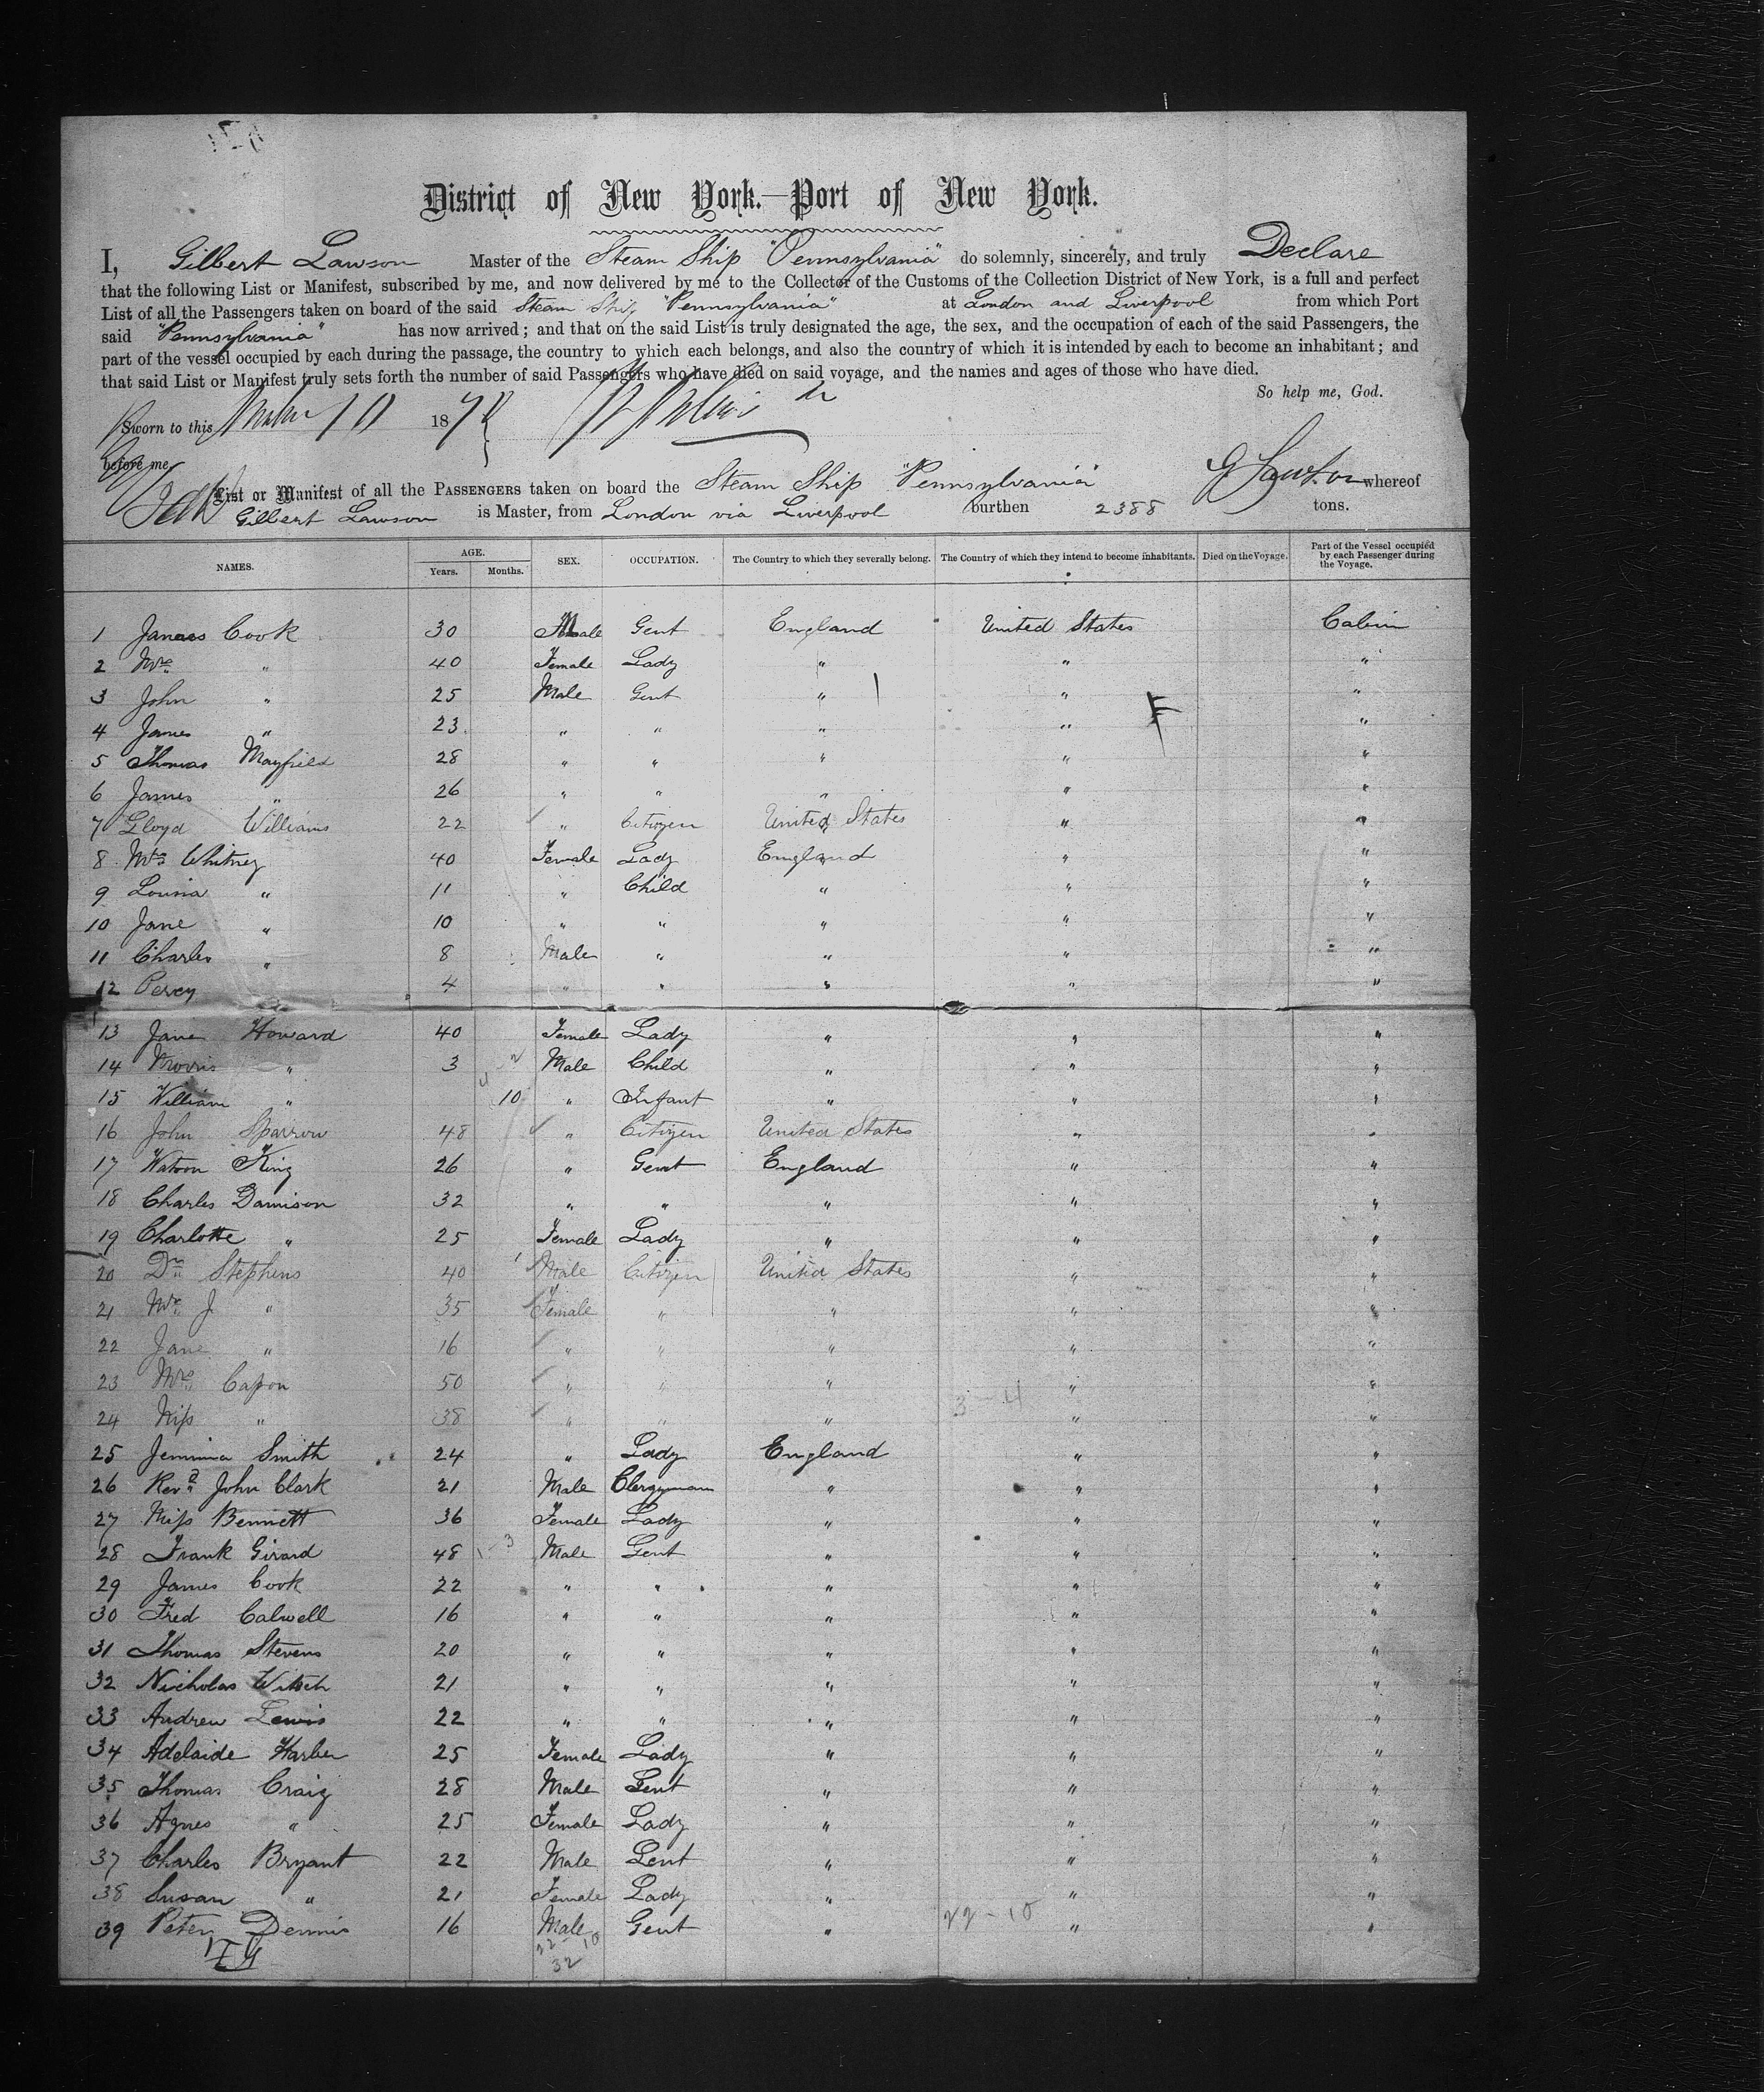 District of New York.—Port of New York.
I, Gilbert Lawson Master of the Steam Ship "Pennsylvania" do solemnly, sincerely, and truly Declare
that the following List or Manifest, subscribed by me, and now delivered by me to the Collector of the Customs of the Collection District of New York, is a full and perfect
List of all the Passengers taken on board of the said Steam Ship "Pennsylvania" at London and Liverpool from which Port
said "Pennsylvania" has now arrived; and that on the said List is truly designated the age, the sex, and the occupation of each of the said Passengers, the
part of the vessel occupied by each during the passage, the country to which each belongs, and also the country of which it is intended by each to become an inhabitant; and
that said List or Manifest truly sets forth the number of said Passengers who have died on said voyage, and the names and ages of those who have died.
So help me, God.
Sworn to this 10 187
before me
G Lawson
List or Manifest of all the PASSENGERS taken on board the Steam Ship "Pennsylvania" whereof
Gilbert Lawson is Master, from London via Liverpool burthen 2388 tons.
NAMES. AGE. Years. Months. SEX. OCCUPATION. The Country to which they severally belong. The Country of which they intend to become inhabitants. Died on the Voyage. Part of the Vessel occupied by each Passenger during the Voyage.
1 James Cook 30 Male Gent England United States Cabin
2 Mrs " 40 Female Lady " " "
3 John " 25 Male Gent " " "
4 James " 23 " " " " "
5 Thomas Mayfield 28 " " " " "
6 James " 26 " " " " "
7 Lloyd Williams 22 " Citizen United States " "
8 Mrs Whitney 40 Female Lady England " "
9 Louisa " 11 " Child " " "
10 Jane " 10 " " " " "
11 Charles " 8 Male " " " "
12 Percy 4 " " " " "
13 Jane Howard 40 Female Lady " " "
14 Morris " 3 Male Child " " "
15 William " 10 " Infant " " "
16 John Sparrow 48 " Citizen United States " "
17 Watson King 26 " Gent England " "
18 Charles Damison 32 " " " " "
19 Charlotte " 25 Female Lady " " "
20 Dr Stephens 40 Male Citizen United States " "
21 Mrs J " 35 Female " " " "
22 Jane " 16 " " " " "
23 Mrs Capon 50 " " " " "
24 Miss " 38 " " " " "
3-4
25 Jemima Smith 24 " Lady England " "
26 Revd John Clark 21 Male Clergyman " " "
27 Miss Bennett 36 Female Lady " " "
28 Frank Girard 48 Male Gent " " "
29 James Cook 22 " " " " "
30 Fred Calwell 16 " " " " "
31 Thomas Stevens 20 " " " " "
32 Nicholas Witsch 21 " " " " "
33 Andrew Lewis 22 " " " " "
34 Adelaide Harber 25 Female Lady " " "
35 Thomas Craig 28 Male Gent " " "
36 Agnes " 25 Female Lady " " "
37 Charles Bryant 22 Male Gent " " "
38 Susan " 21 Female Lady " " "
39 Peter Dennis 16 Male Gent " " "
22-10
32